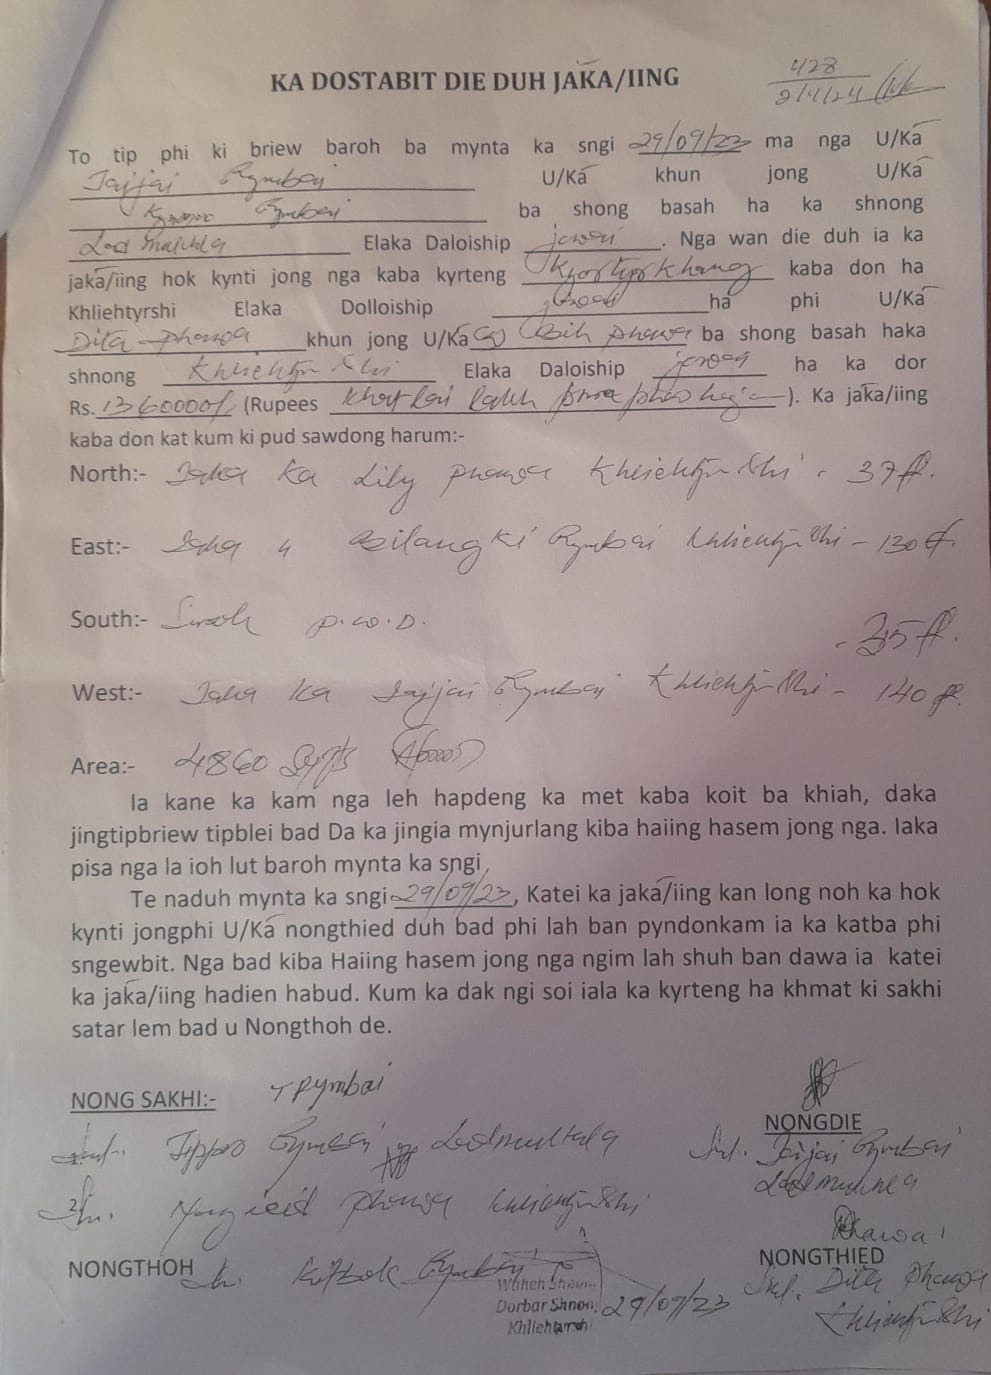 KA DOSTABIT DIE DUH JAKA/IING
428
2/4/24
To tip phi ki briew baroh ba mynta ka sngi 29/09/23 ma nga U/Kā
Jaijai Rymbai U/Kā khun jong U/Kā
Rymbai ba shong basah ha ka shnong
Elaka Daloiship jowai. Nga wan die duh ia ka
jakā/iing hok kynti jong nga kaba kyrteng kaba don ha
Khliehtyrshi Elaka Dolloiship ha phi U/Kā
Dita Phawa khun jong U/Kā (L) Phawa ba shong basah haka
shnong Khliehtyrshi Elaka Daloiship jowai ha ka dor
Rs. 1360000/- (Rupees ). Ka jakā/iing
kaba don kat kum ki pud sawdong harum:-
North:- Jaka Ka Lily Phawa Khliehtyrshi - 37 ft.
East:- Jaka u Bilangki Rymbai Khliehtyrshi - 130 ft.
South:- Surok P.W.D. - 35 ft.
West:- Jaka Ka Jaijai Rymbai Khliehtyrshi - 140 ft.
Area:- 4860 Sqfts
Ia kane ka kam nga leh hapdeng ka met kaba koit ba khiah, daka
jingtipbriew tipblei bad Da ka jingia mynjurlang kiba haiing hasem jong nga. Iaka
pisa nga la ioh lut baroh mynta ka sngi
Te naduh mynta ka sngi 29/09/23, Katei ka jakā/iing kan long noh ka hok
kynti jongphi U/Kā nongthied duh bad phi lah ban pyndonkam ia ka katba phi
sngewbit. Nga bad kiba Haiing hasem jong nga ngim lah shuh ban dawa ia katei
ka jakā/iing hadien habud. Kum ka dak ngi soi iala ka kyrteng ha khmat ki sakhi
satar lem bad u Nongthoh de.
NONG SAKHI:- T Rymbai
NONGDIE
Rymbai
Sd/. Jaijai Rymbai
Phawa Khliehtyrshi
Phawa
NONGTHOH Rymbai
NONGTHIED
Waheh Shnong
Durbar Shnong 29/09/23
Khliehtyrshi
Dita Phawa
Khliehtyrshi